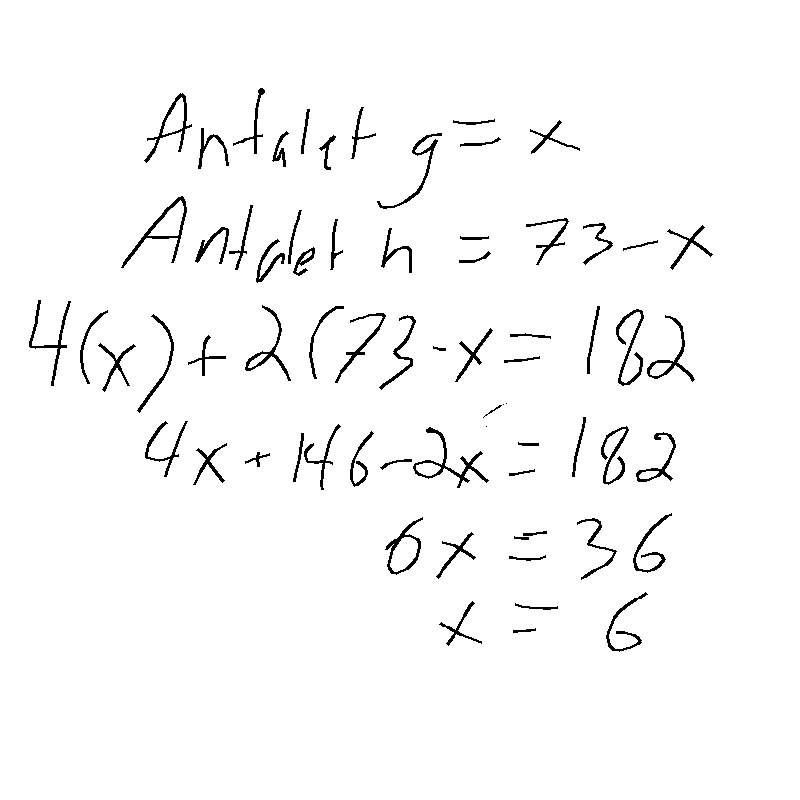 Antalet g = x
Antalet h = 73 - x
4(x) + 2(73 - x = 182
4x + 146 - 2x = 182
6x = 36
x = 6